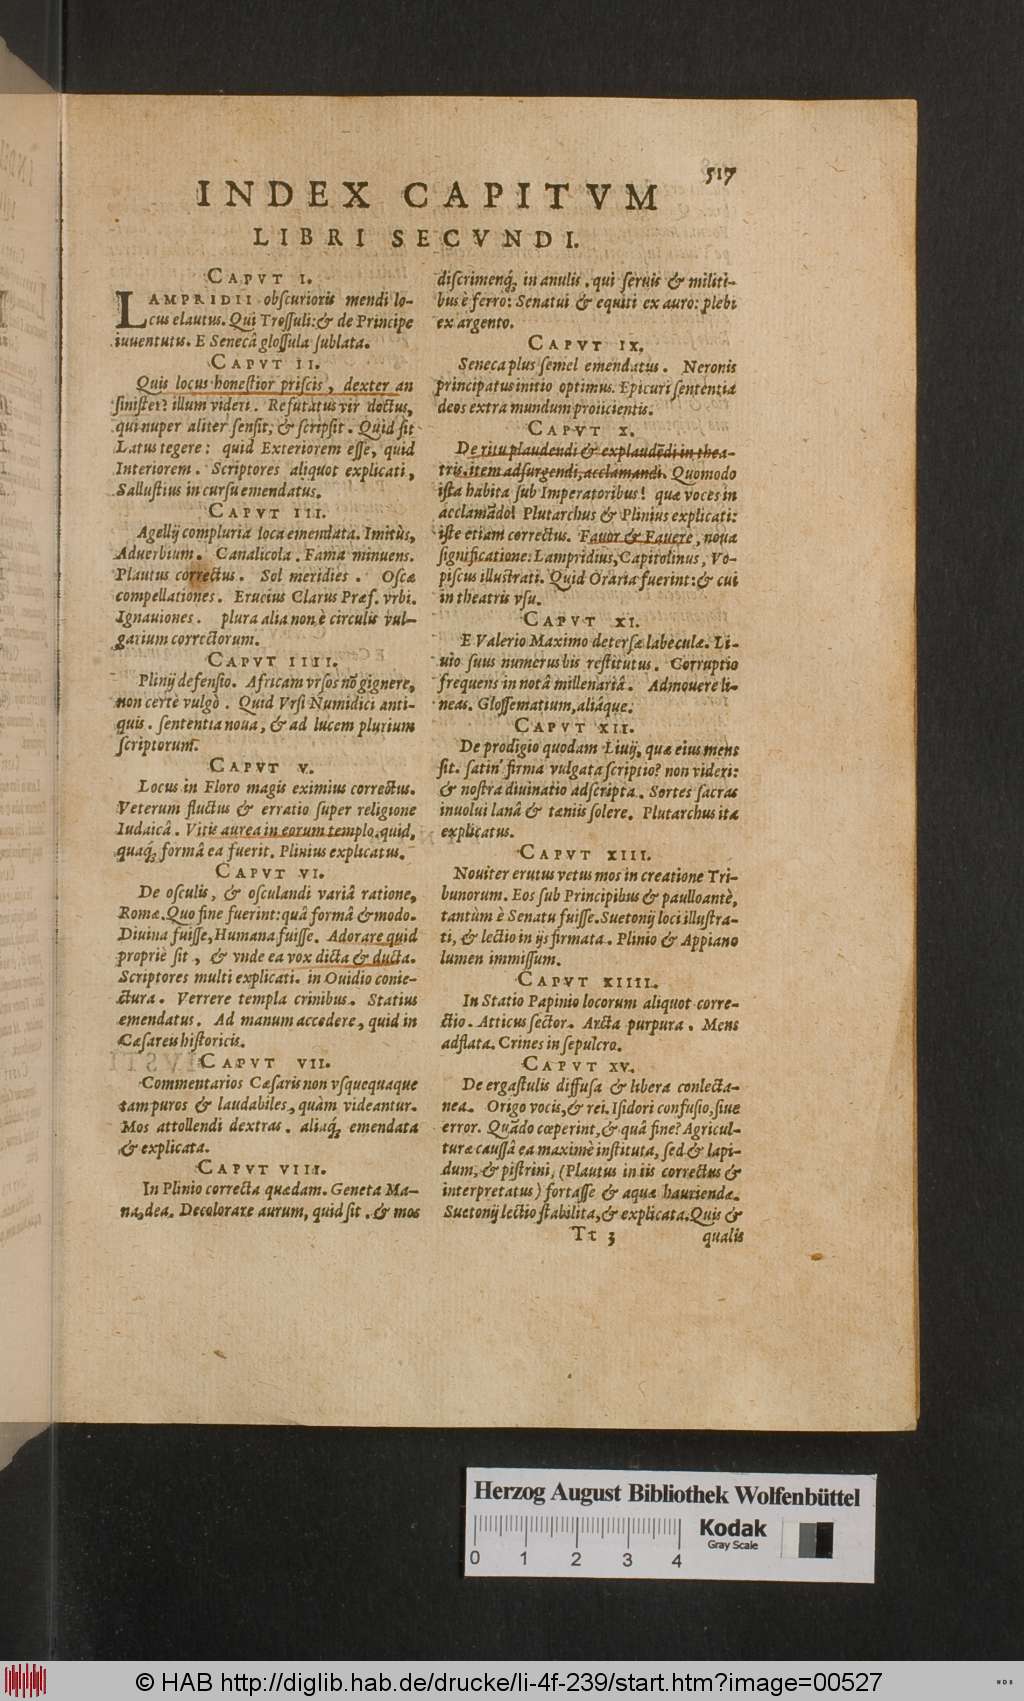 517
INDEX CAPITVM
LIBRI SECVNDI.
CAPVT I.
LAMPRIDII obscurioris mendi lo-
cus elautus. Qui Trossuli: & de Principe
iuuentutis. E Senecâ glossula sublata.
CAPVT II.
Quis locus honestior priscis, dexter an
sinister? illum videri. Refutatus vir doctus,
qui nuper aliter sensit, & scripsit. Quid sit
Latus tegere: quid Exteriorem esse, quid
Interiorem. Scriptores aliquot explicati,
Sallustius in cursu emendatus.
CAPVT III.
Agellij compluria loca emendata. Imitùs,
Aduerbium. Canalicola. Fama minuens.
Plautus correctus. Sol meridies. Oscæ
compellationes. Erucius Clarus Præf. vrbi.
Ignauiones. plura alia non è circulis vul-
garium correctorum.
CAPVT IIII.
Plinij defensio. Africam vrsos nõ gignere,
non certè vulgò. Quid Vrsi Numidici anti-
quis. sententia noua, & ad lucem plurium
scriptorum.
CAPVT V.
Locus in Floro magis eximius correctus.
Veterum fluctus & erratio super religione
Iudaicâ. Vitis aurea in eorum templo, quid,
quaq́; formâ ea fuerit. Plinius explicatus.
CAPVT VI.
De osculis, & osculandi variâ ratione,
Romæ. Quo fine fuerint: quâ formâ & modo.
Diuina fuisse, Humana fuisse. Adorare quid
propriè sit, & vnde ea vox dicta & ducta.
Scriptores multi explicati. in Ouidio conie-
ctura. Verrere templa crinibus. Statius
emendatus. Ad manum accedere, quid in
Cæsareis historicis.
CAPVT VII.
Commentarios Cæsaris non vsquequaque
tam puros & laudabiles, quàm videantur.
Mos attollendi dextras. aliaq́; emendata
& explicata.
CAPVT VIII.
In Plinio correcta quædam. Geneta Ma-
na, dea. Decolorare aurum, quid sit. & mos
discrimenq́; in anulis. qui seruis & militi-
bus è ferro: Senatui & equiti ex auro: plebi
ex argento.
CAPVT IX.
Seneca plus semel emendatus. Neronis
principatus initio optimus. Epicuri sententia
deos extra mundum proiicientis.
CAPVT X.
De ritu plaudendi & explaudẽdi in thea-
tris. item adsurgendi, acclamandi. Quomodo
ista habita sub Imperatoribus! quæ voces in
acclamãdo! Plutarchus & Plinius explicati:
iste etiam correctus. Fauor & Fauere, noua
significatione: Lampridius, Capitolinus, Vo-
piscus illustrati. Quid Oraria fuerint: & cui
in theatris vsu.
CAPVT XI.
E Valerio Maximo detersæ labeculæ. Li-
uio suus numerus bis restitutus. Corruptio
frequens in notâ millenariâ. Admouere li-
neas. Glossematium, aliáque.
CAPVT XII.
De prodigio quodam Liuij, quæ eius mens
sit. satin' firma vulgata scriptio? non videri:
& nostra diuinatio adscripta. Sortes sacras
inuolui lanâ & tæniis solere. Plutarchus ita
explicatus.
CAPVT XIII.
Nouiter erutus vetus mos in creatione Tri-
bunorum. Eos sub Principibus & paulloantè,
tantùm è Senatu fuisse. Suetonij loci illustra-
ti, & lectio in ijs firmata. Plinio & Appiano
lumen immissum.
CAPVT XIIII.
In Statio Papinio locorum aliquot corre-
ctio. Atticus sector. Arcta purpura. Mens
adflata. Crines in sepulcro.
CAPVT XV.
De ergastulis diffusa & libera conlecta-
nea. Origo vocis, & rei. Isidori confusio, siue
error. Quãdo cœperint, & quâ fine? Agricul-
turæ caussâ ea maximè instituta, sed & lapi-
dum, & pistrini, (Plautus in iis correctus &
interpretatus) fortasse & aquæ hauriendæ.
Suetonij lectio stabilita, & explicata. Quis &
Tt 3 qualis
Herzog August Bibliothek Wolfenbüttel
0 1 2 3 4
Kodak
Gray Scale
© HAB http://diglib.hab.de/drucke/li-4f-239/start.htm?image=00527